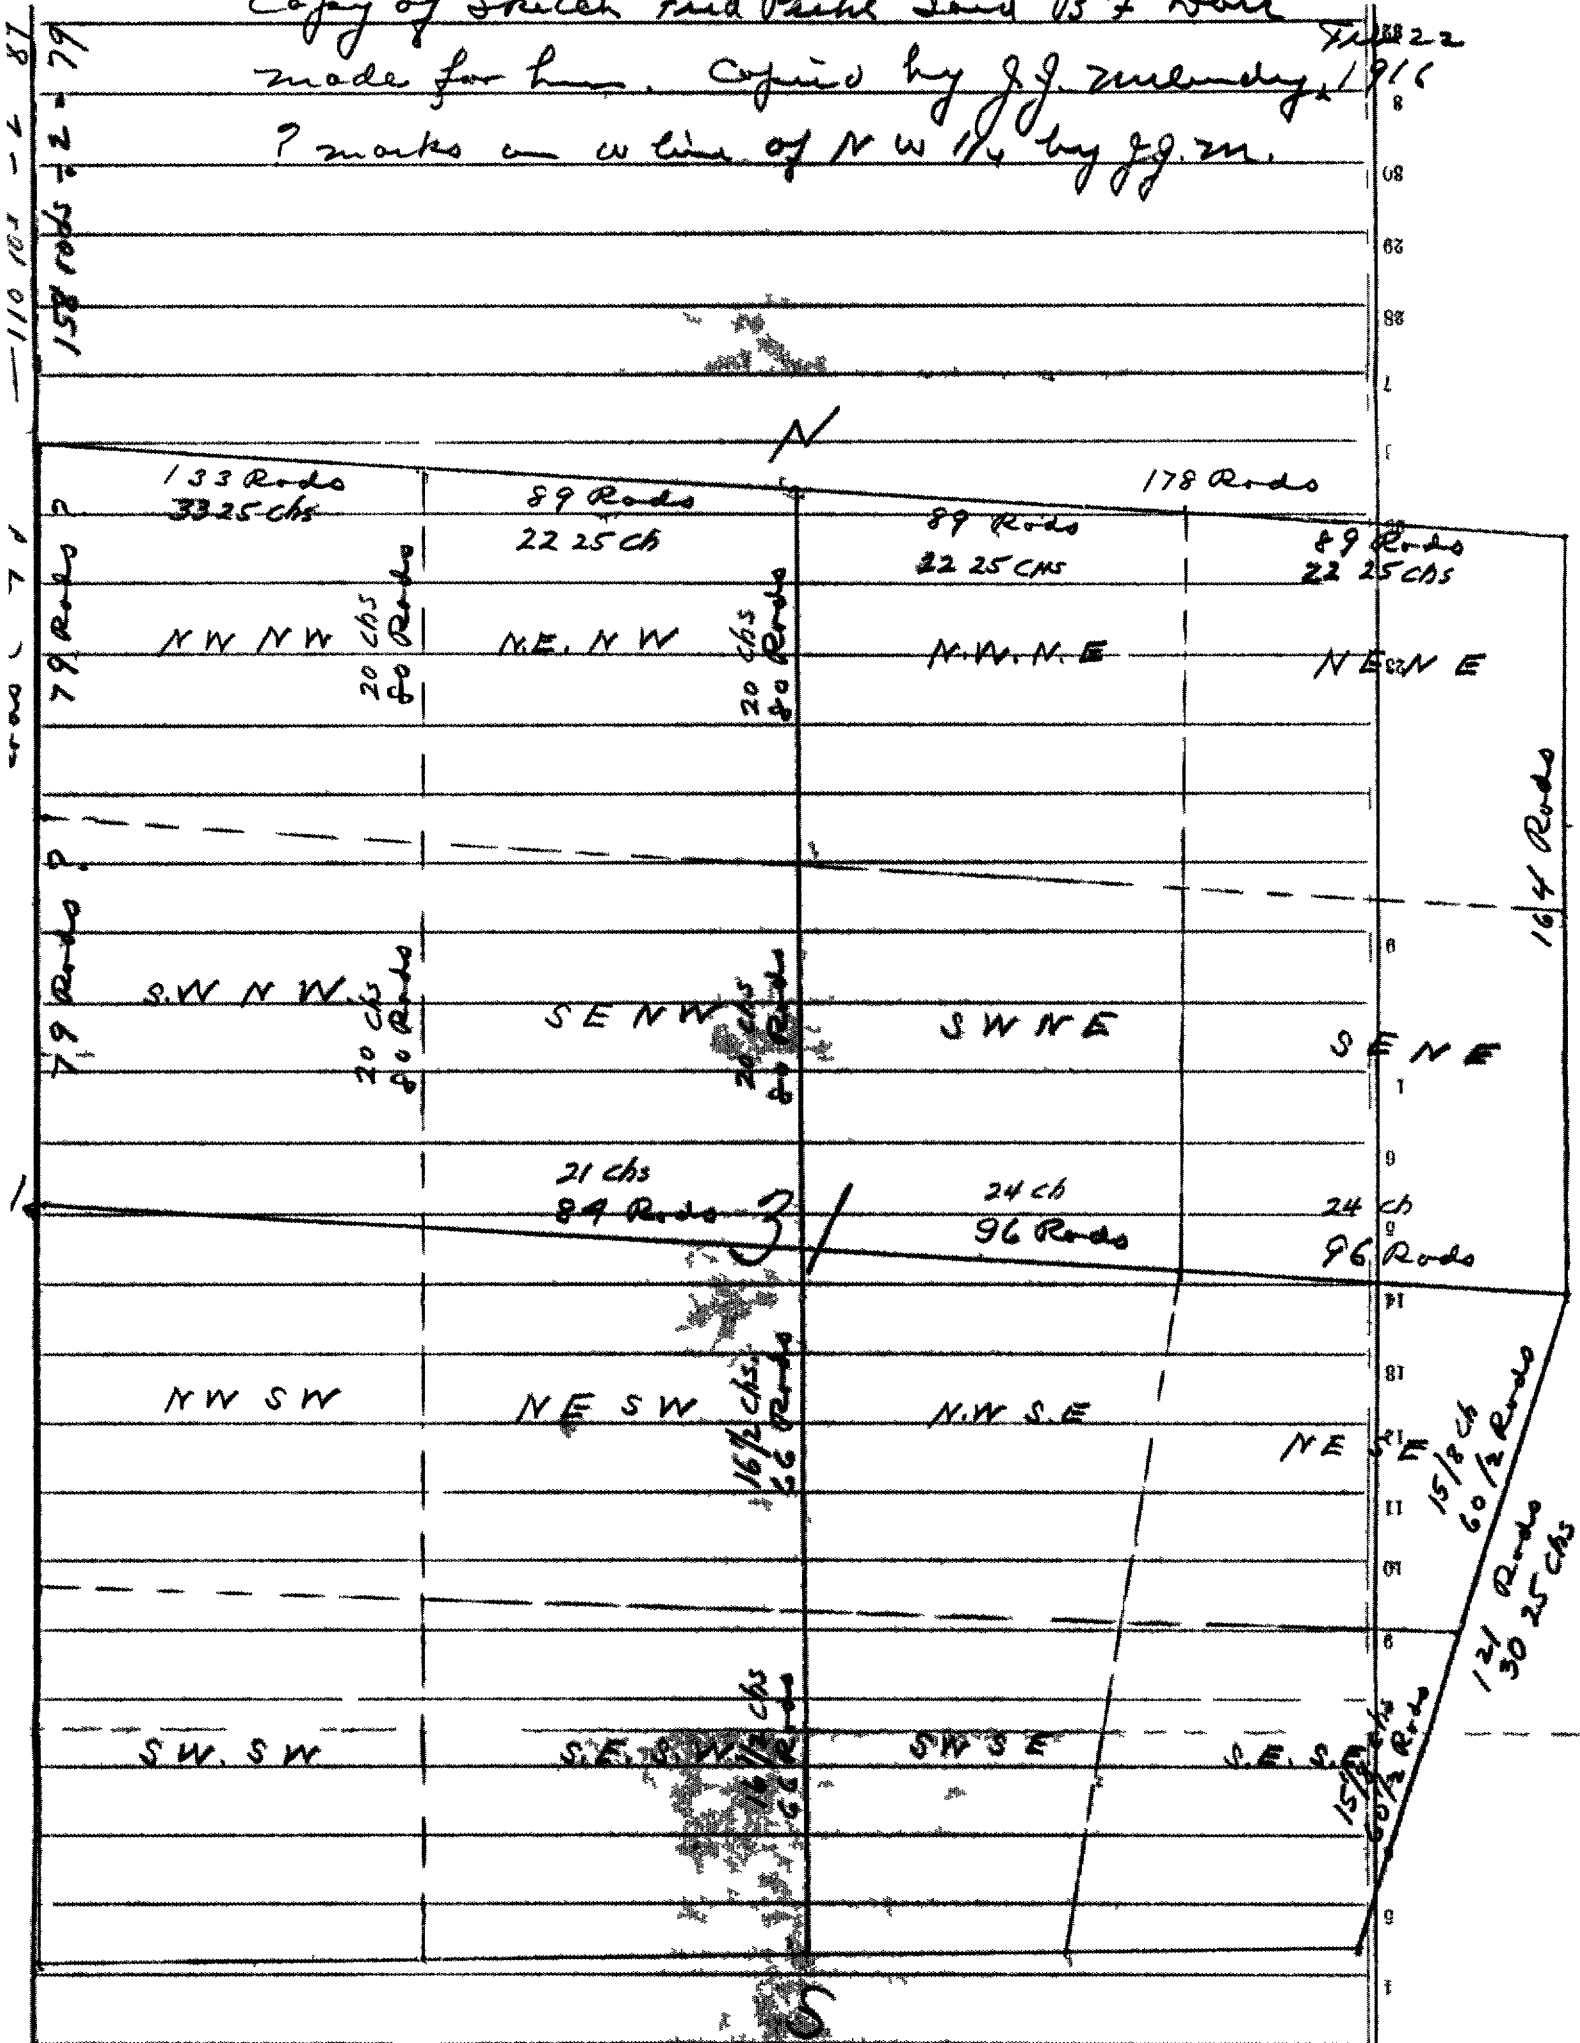 Copy of Sketch Fred said B F
made for him. Copied by J.J. 1916
22
? marks on w line of N W 1/4 by J.J.M.
158 rods ÷ 2 = 79
N
133 Rods
33 25 chs
89 Rods
22 25 ch
178 Rods
89 Rods
22 25 CHS
89 Rods
22 25 chs
79 Rods ?
N W N W
20 chs
80 Rods
N.E. N W
20 chs
80 Rods
N.W. N.E
N E N E
164 Rods
79 Rods ?
S.W N W.
20 chs
80 Rods
S E N W
20 chs
80 Rods
S W N E
S E N E
21 chs
84 Rods
31
24 ch
96 Rods
24 ch
96 Rods
N W S W
N E S W
16 1/2 chs.
66 Rods
N.W S.E
N E S E
15 1/8 ch
60 1/2 Rods
121 Rods
30 25 chs
S W. S W
S.E. S.W
16 1/2 chs
66 Rods
S W S E
S.E. S.E
15 1/8 chs
60 1/2 Rods
S